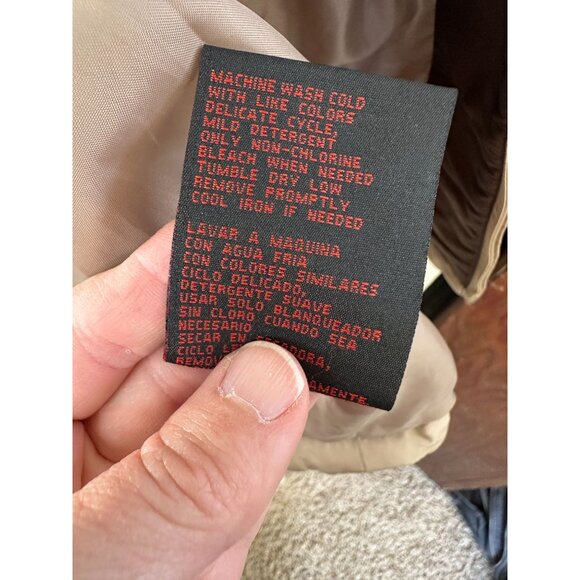 MACHINE WASH COLD
WITH LIKE COLORS
DELICATE CYCLE,
MILD DETERGENT
ONLY NON-CHLORINE
BLEACH WHEN NEEDED
TUMBLE DRY LOW
REMOVE PROMPTLY
COOL IRON IF NEEDED
LAVAR A MAQUINA
CON AGUA FRIA
CON COLORES SIMILARES
CICLO DELICADO,
DETERGENTE SUAVE
USAR SOLO BLANQUEADOR
SIN CLORO CUANDO SEA
NECESARIO
SECAR EN
CICLO